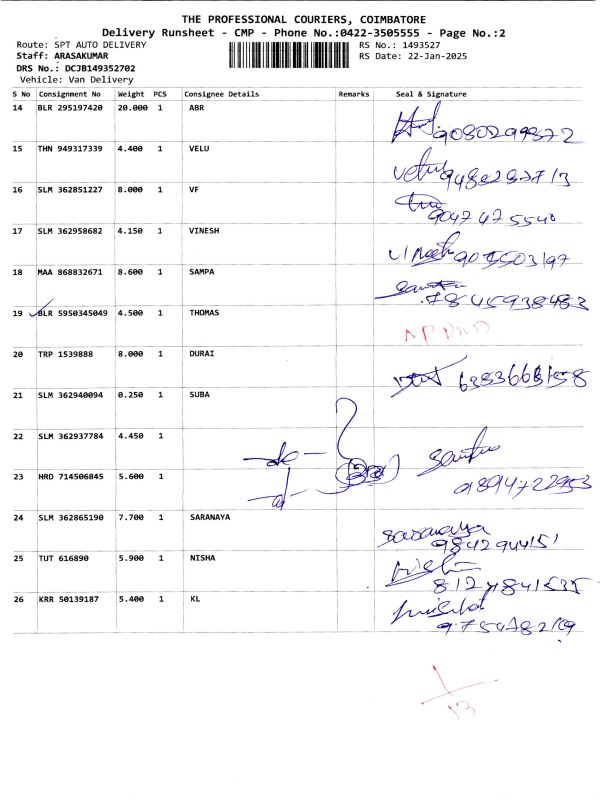 THE PROFESSIONAL COURIERS, COIMBATORE
Delivery Runsheet - CMP - Phone No.:0422-3505555 - Page No.:2
Route: SPT AUTO DELIVERY
RS No.: 1493527
Staff: ARASAKUMAR
RS Date: 22-Jan-2025
DRS No.: DCJB149352702
Vehicle: Van Delivery
S No Consignment No Weight PCS Consignee Details Remarks Seal & Signature
14 BLR 295197420 20.000 1 ABR
15 THN 949317339 4.400 1 VELU
16 SLM 362851227 8.000 1 VF
9047475540
17 SLM 362958682 4.150 1 VINESH
18 MAA 868832671 8.600 1 SAMPA
7845938483
19 BLR 5950345049 4.500 1 THOMAS
20 TRP 1539888 8.000 1 DURAI
21 SLM 362940094 0.250 1 SUBA
22 SLM 362937784 4.450 1
23 HRD 714506845 5.600 1
9894722953
24 SLM 362865190 7.700 1 SARANAYA
saranaya
9842944151
25 TUT 616890 5.900 1 NISHA
8124841535
26 KRR 50139187 5.400 1 KL
13